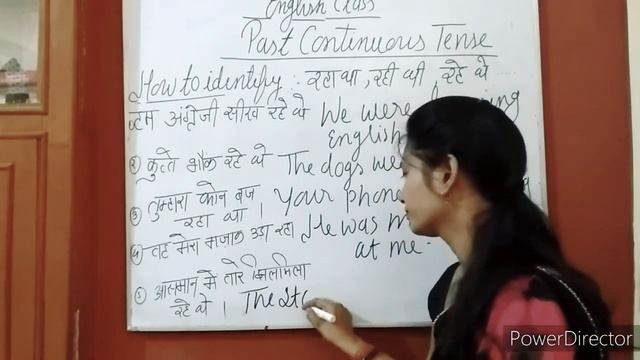 English Class
Past Continuous Tense
How to identify : रहा था, रही थी, रहे थे
हम अंग्रेजी सीख रहे थे We were
English
② कुत्ते भौंक रहे थे The dogs
③ तुम्हारा फोन बज Your phone
रहा था ।
④ वह मेरा मजाक उड़ा रहा He was
at me.
⑤ आसमान में तारे झिलमिला
रहे थे । The sta
PowerDirector